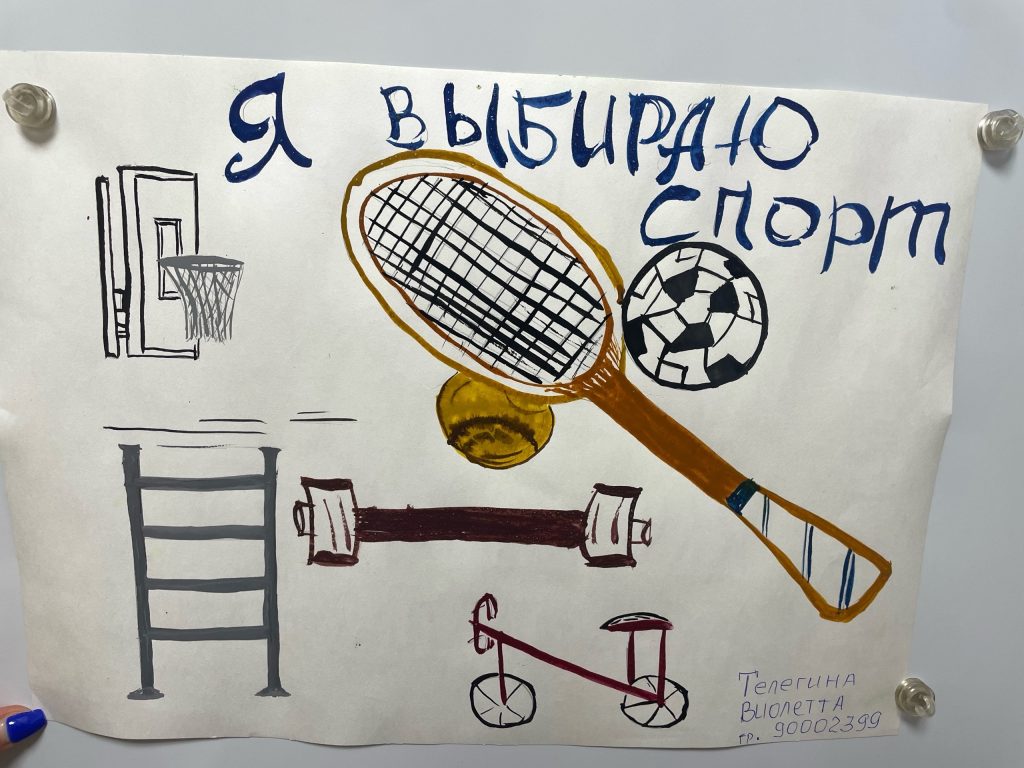 Я ВЫБИРАЮ
СПОРТ
Телегина
Виолетта
гр. 90002399